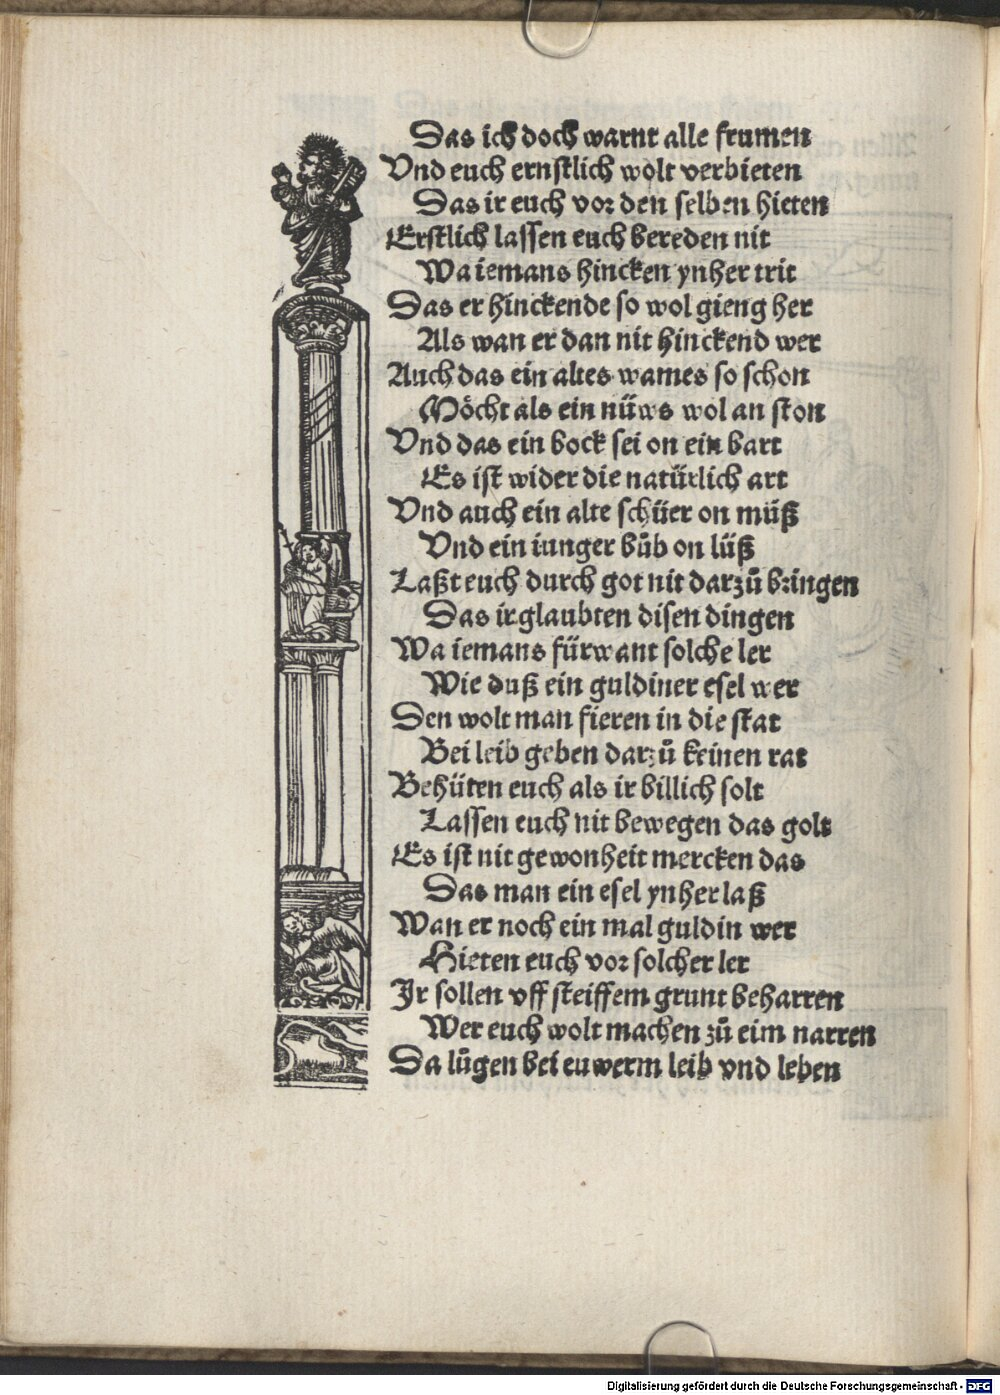 Das ich doch warnt alle frumen
Vnd euch ernstlich wolt verbieten
Das ir euch vor den selben hieten
Erstlich lassen euch bereden nit
Wa iemans hincken ynher trit
Das er hinckende so wol gieng her
Als wan er dan nit hinckend wer
Auch das ein altes wames so schon
Möcht als ein nüws wol an ston
Vnd das ein bock sei on ein bart
Es ist wider die natürlich art
Vnd auch ein alte schüer on müß
Vnd ein iunger bůb on lüß
Laßt euch durch got nit darzů bringen
Das ir glaubten disen dingen
Wa iemans fürwant solche ler
Wie duß ein guldiner esel wer
Den wolt man fieren in die stat
Bei leib geben darzů keinen rat
Behüten euch als ir billich solt
Lassen euch nit bewegen das golt
Es ist nit gewonheit mercken das
Das man ein esel ynher laß
Wan er noch ein mal guldin wer
Hieten euch vor solcher ler
Ir sollen vff steiffem grunt beharren
Wer euch wolt machen zů eim narren
Da lůgen bei euwerm leib vnd leben
Digitalisierung gefördert durch die Deutsche Forschungsgemeinschaft - DFG